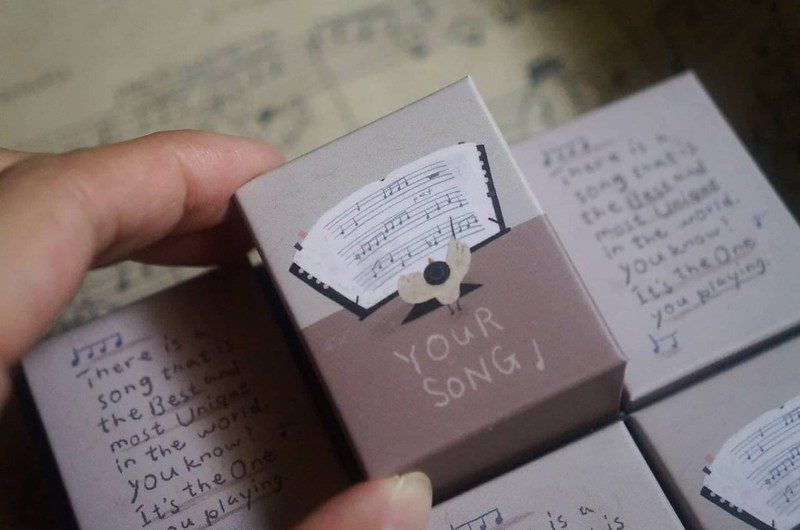 YOUR
SONG♪
There is a
song that is
the Best and
most Unique
in the world.
you know?
It's the One
you playing.
There is a
song that is
the Best and
most Unique
in the world.
you know?
It's the One
you playing.
is a
is